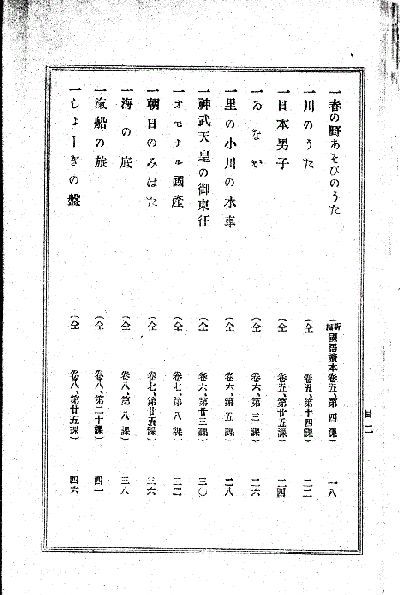 一春の野あそびのうた（新編國語讀本卷五、第四課）一八
一川のうた（仝 卷五、第十四課）二二
一日本男子（仝 卷五、第廿五課）二四
一ゐなか（仝 卷六、第三課）二六
一里の小川の水車（仝 卷六、第五課）二八
一神武天皇の御東征（仝 卷六、第廿三課）三〇
一オモナル國產（仝 卷七、第八課）三三
一朝日のみはた（仝 卷七、第廿五課）三六
一海の底（仝 卷八、第八課）三八
一滊船の旅（仝 卷八、第二十課）四一
一しょーぎの盤（仝 卷八、第廿五課）四六
目二